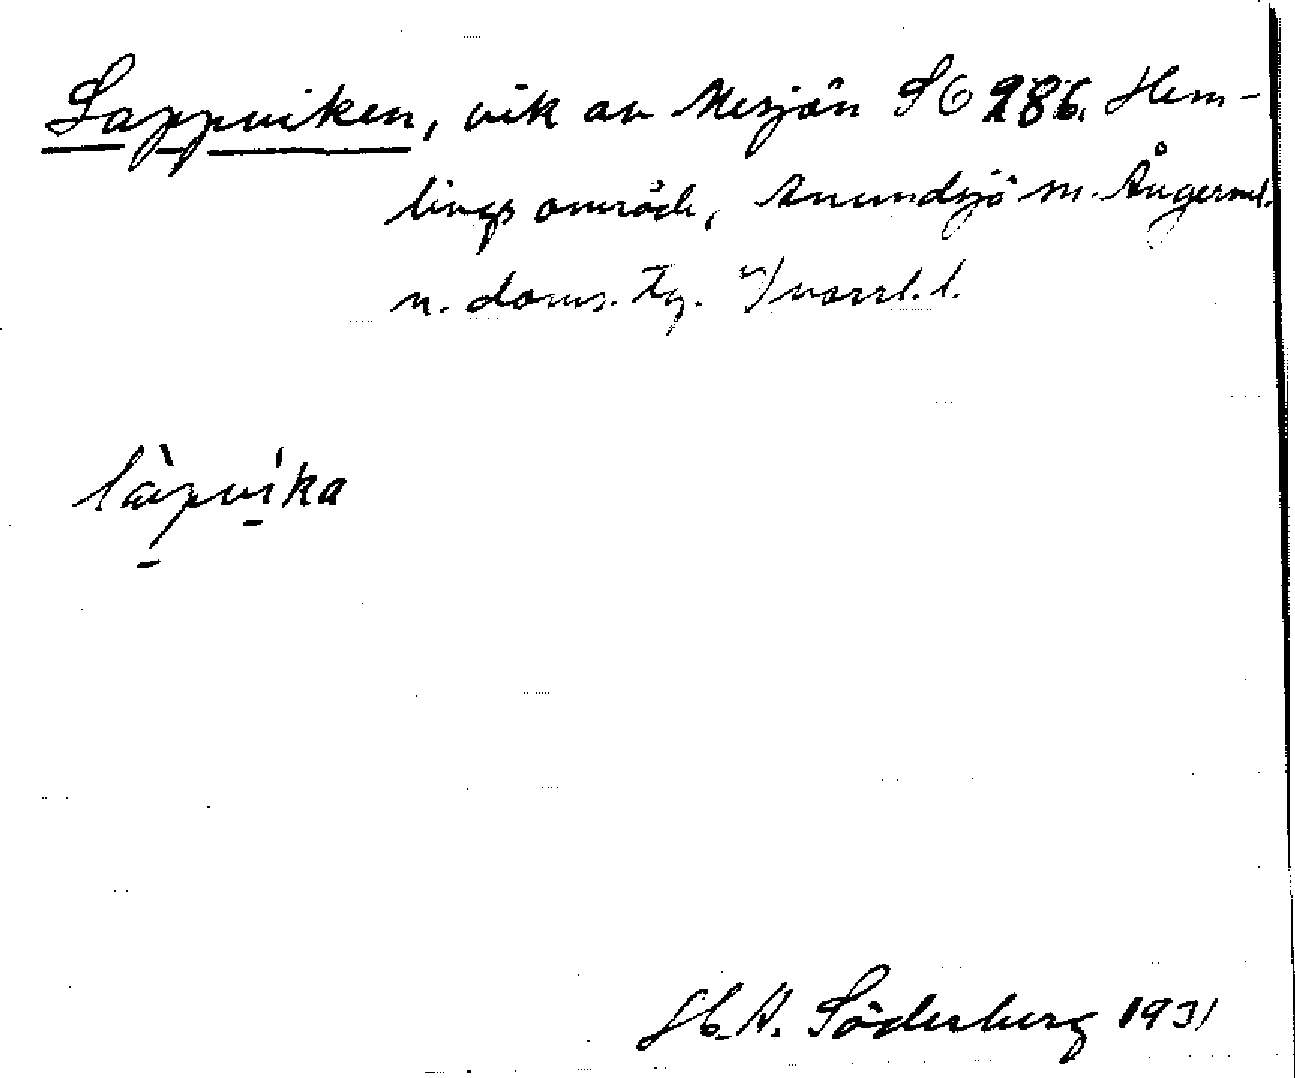 Lappviken, vik av Mesjön SO 286. Hem-
lings område, Anundsjö sn. Ångerml.
n. doms. Tg. Västrl. l.
làpvika
H. A. Söderberg 1931